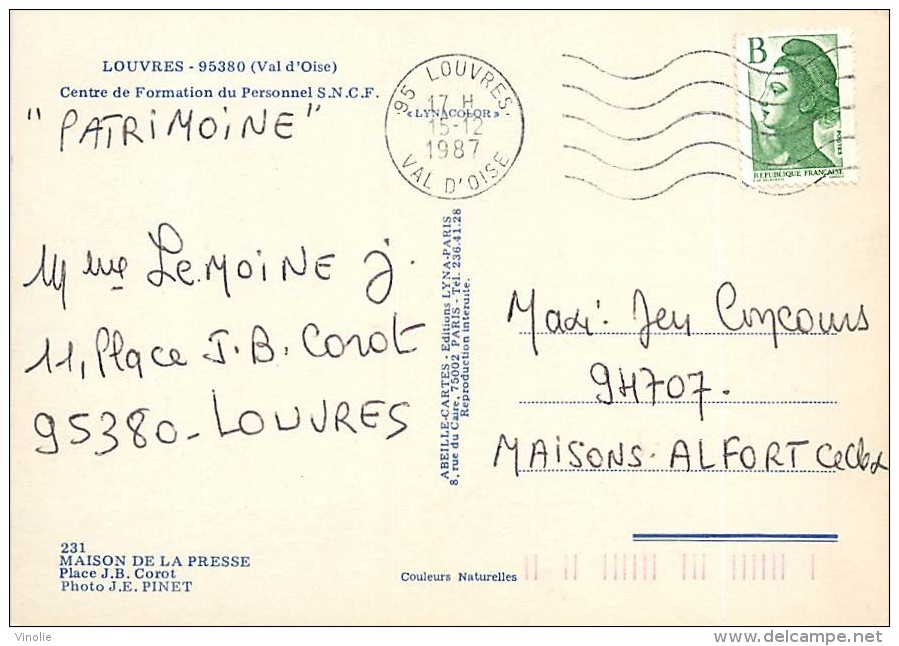 LOUVRES - 95380 (Val d'Oise)
Centre de Formation du Personnel S.N.C.F.
"PATRIMOINE"
«LYNACOLOR» -
95 LOUVRES
17 H
15-12
1987
VAL D'OISE
B
POSTES
REPUBLIQUE FRANÇAISE
Mme LEMOINE J.
11, Place J.B. Corot
95380 - LOUVRES
ABEILLE-CARTES - Editions LYNA-PARIS
8, rue du Caire, 75002 PARIS - Tél. 236.41.28
Reproduction interdite.
Maxi. Jeu Concours
94707.
MAISONS. ALFORT Cedex
231
MAISON DE LA PRESSE
Place J.B. Corot
Photo J.E. PINET
Couleurs Naturelles
Vinolie
www.delcampe.net